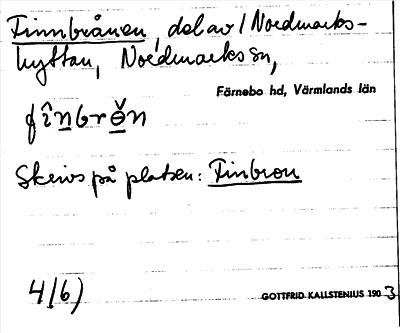 Finnbrånen, del av / Nordmarks-
hyttan, Nordmarks sn,
Färnebo hd, Värmlands län
fînbrə̌n
Skrivs på platsen: Finbron
4/6)
GOTTFRID KALLSTENIUS 1903